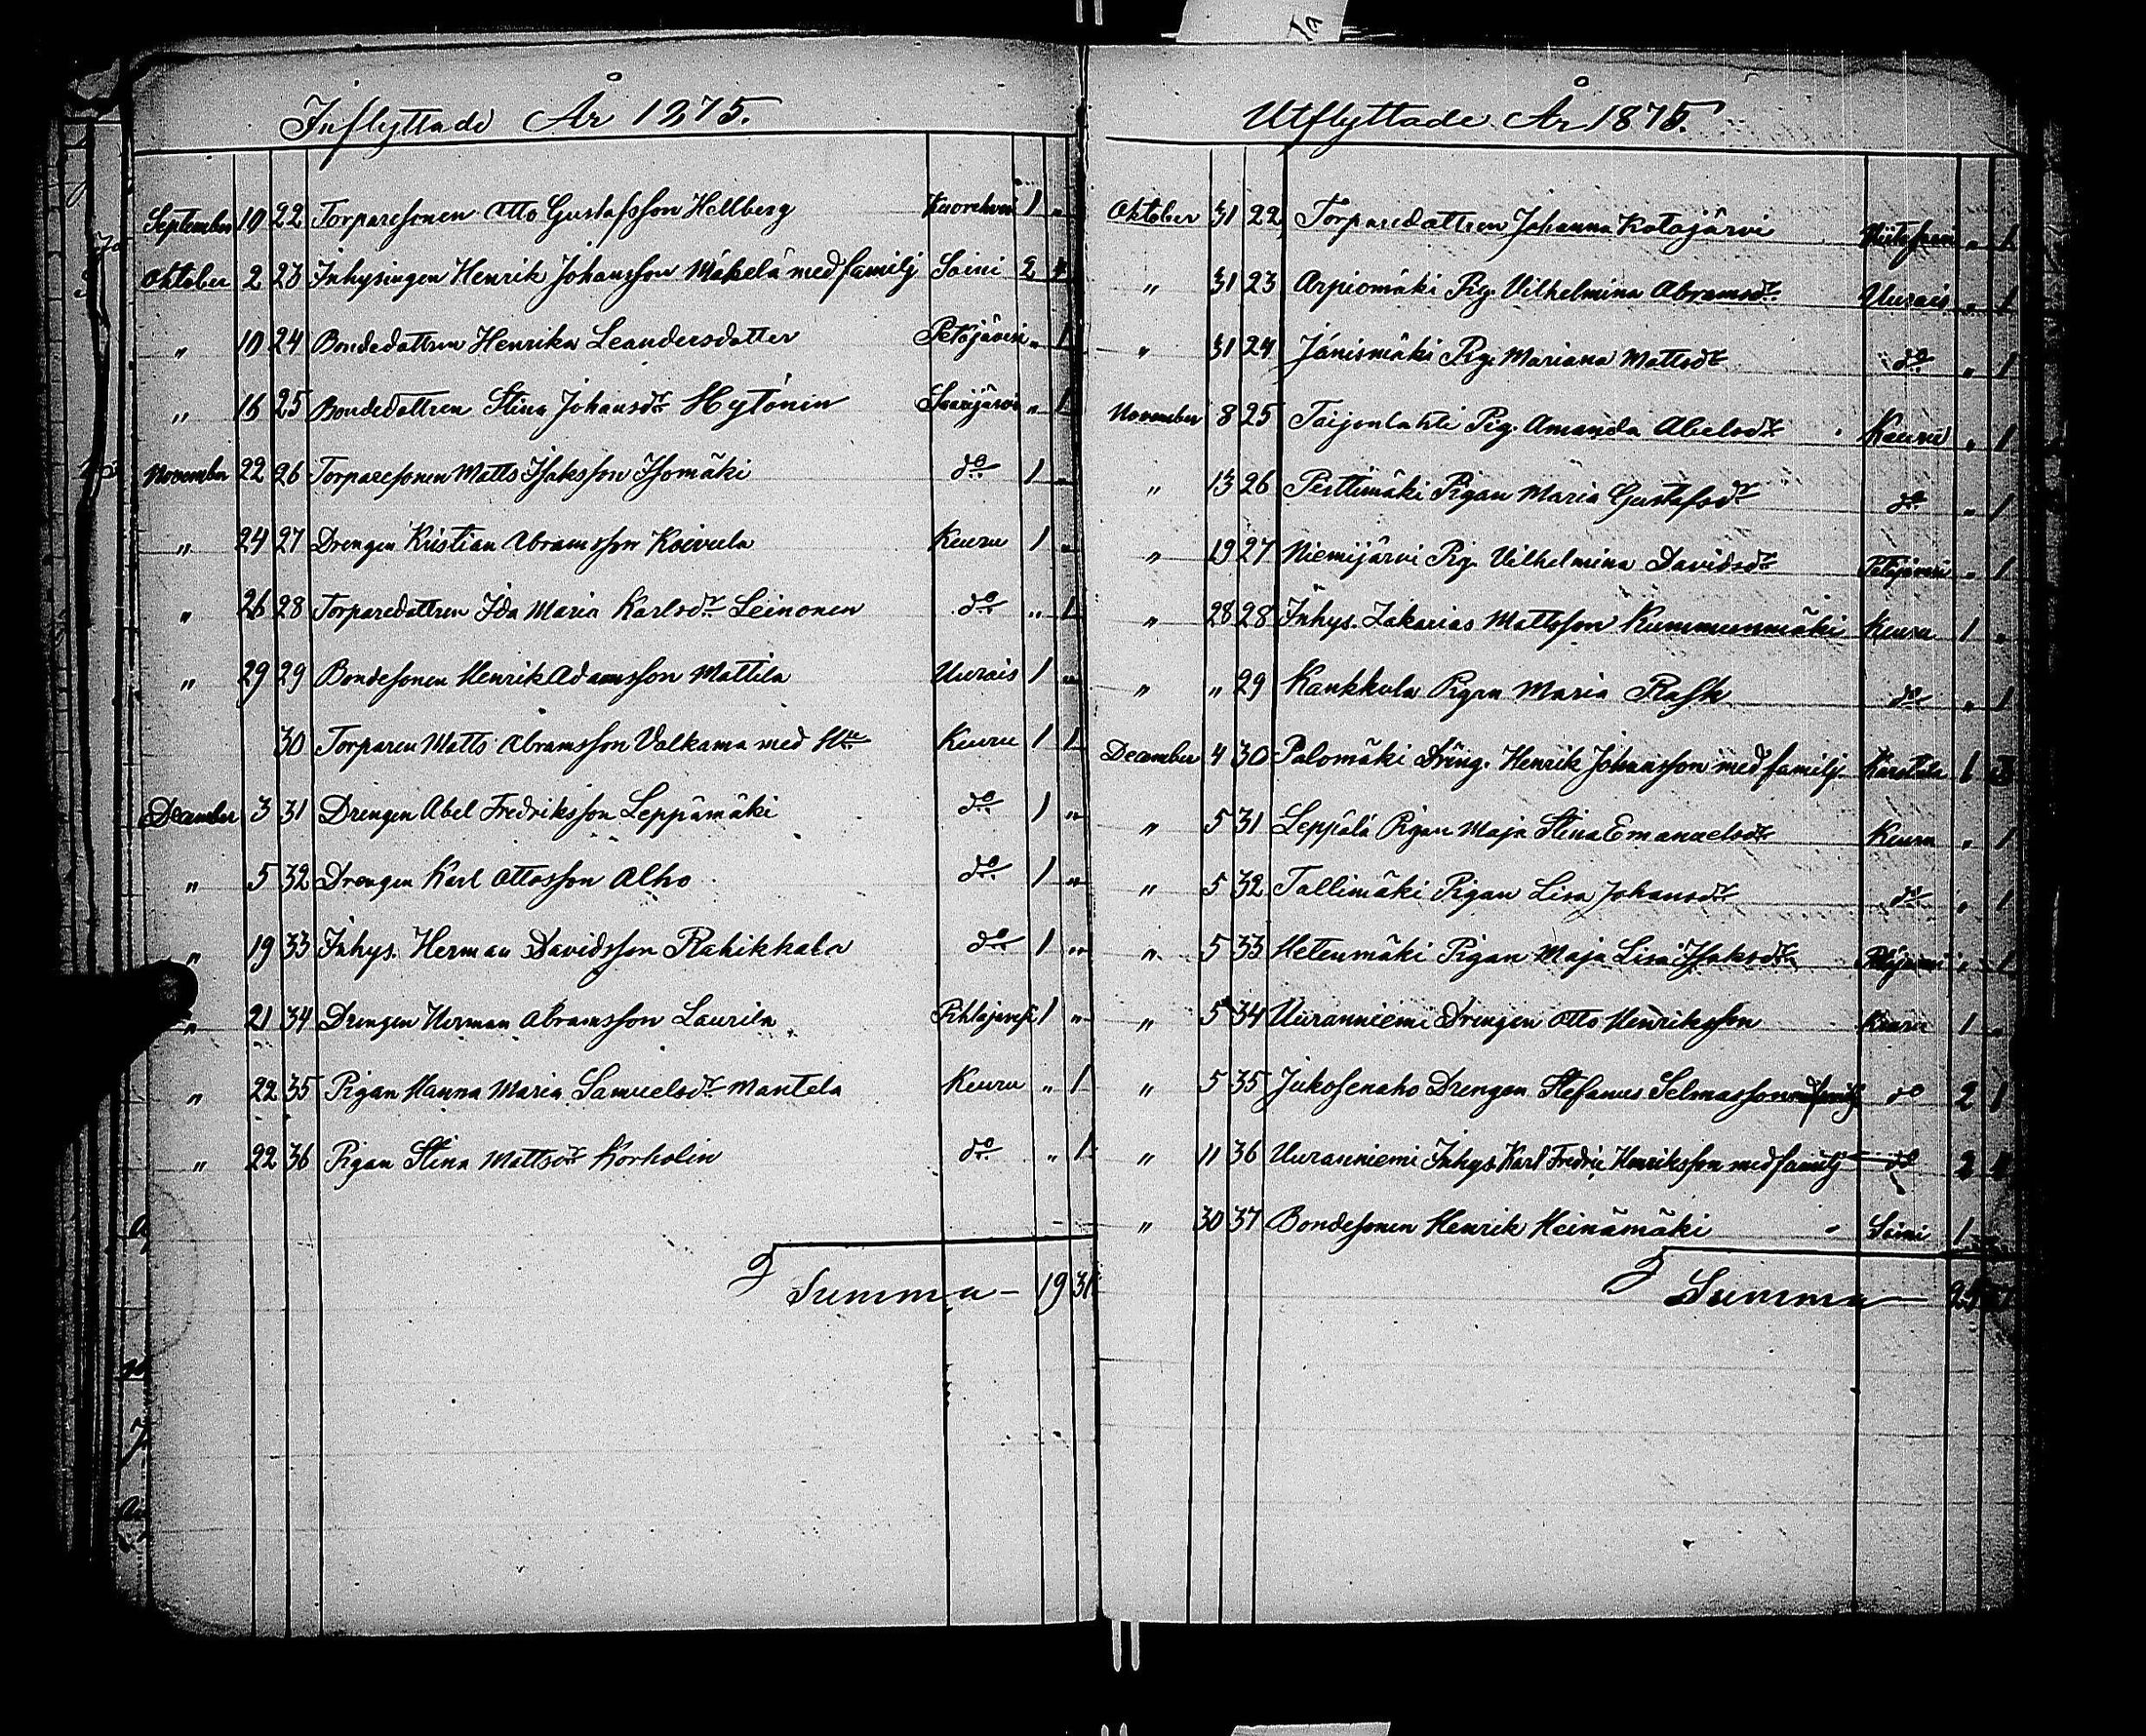 Inflyttade År 1875.
September 10 22 Torparesonen Otto Gustafsson Hellberg Kuorehvesi 1 "
Oktober 2 23 Inhysingen Henrik Johansson Mäkelä med familj Soini 2 4
" 10 24 Bondedottren Henrika Leandersdotter Petäjävesi " 1
" 16 25 Bondedottren Stina Johansdr Hytönin Saarijärvi " 1
November 22 26 Torparesonen Matts Isaksson Isomäki do 1 "
" 24 27 Drengen Kristian Abramsson Koivula Keuru 1 "
" 26 28 Torparedottren Ida Maria Karlsdr Leinonen do " 1
" 29 29 Bondesonen Henrik Adamsson Mattila Uurais 1 "
30 Torparen Matts Abramsson Valkama med Hu Keuru 1 1
December 3 31 Drengen Abel Fredriksson Leppämäki do 1 "
" 5 32 Drengen Karl Ottosson Alho do 1 "
" 19 33 Inhys. Herman Davidsson Rahikkala do 1 "
" 21 34 Drengen Herman Abramsson Laurila Pihlajavesi 1 "
" 22 35 Pigan Hanna Maria Samuelsdr Mantela Keuru " 1
" 22 36 Pigan Stina Mattsdr Korholin do " 1
Summa - 19 31
Utflyttade År 1875.
Oktober 31 22 Torparedottren Johanna Kotajärvi " 1
" 31 23 Arpiomäki Pig. Vilhelmina Abramsdr Uurais " 1
" 31 24 Jänismäki Pig. Mariana Mattsdr do " 1
November 8 25 Taijonlahti Pig. Amanda Abelsdr Keuru " 1
" 13 26 Perttimäki Pigan Maria Gustafsdr do " 1
" 19 27 Niemijärvi Pig. Vilhelmina Davidsdr Petäjävesi " 1
" 28 28 Inhys. Zakarias Mattsson Kummunmäki Keuru 1 "
" " 29 Kankkula Pigan Maria Rask do " 1
December 4 30 Palomäki Dräng. Henrik Johansson med familj. Karstula 1 3
" 5 31 Leppälä Pigan Maja Stina Emanuelsdr Keuru " 1
" 5 32 Tallimäki Pigan Lisa Johansdr do " 1
" 5 33 Hetenmäki Pigan Maja Lisa Isaksdr " 1
" 5 34 Uuranniemi Drengen Otto Henriksson Keuru 1 "
" 5 35 Jukosenaho Drengen Stefanus Selmasson med familj do 2 1
" 11 36 Uuranniemi Inhys. Karl Fredric Henriksson med familj do 2
" 30 37 Bondesonen Henrik Heinämäki Soini 1
Summa